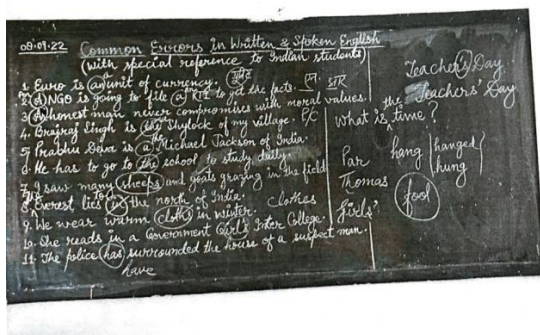 08.09.22 Common Errors in Written & Spoken English
(with special reference to Indian students)
1. Euro is an unit of currency.
2. A NGO is going to file a RTI to get the facts.
3. A honest man never compromises with moral values.
4. Brajraj Singh is the Shylock of my village. P/C
5. Prabhu Deva is a Michael Jackson of India.
6. He has to go to the school to study daily.
7. I saw many sheeps and goats grazing in the field
The
8. Everest lies in the north of India.
To
9. We wear warm cloths in winter.
clothes
10. She reads in a Government Girl's Inter College.
Girls'
11. The police has surrounded the house of a suspect man.
have
Teacher's Day
Teachers' Day
the
What is time?
Par
Thomas
hang
hanged
hung
fool